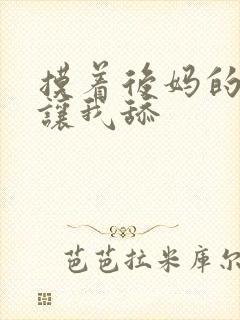 摸着后妈的
讓我舔
芭芭拉米库尔